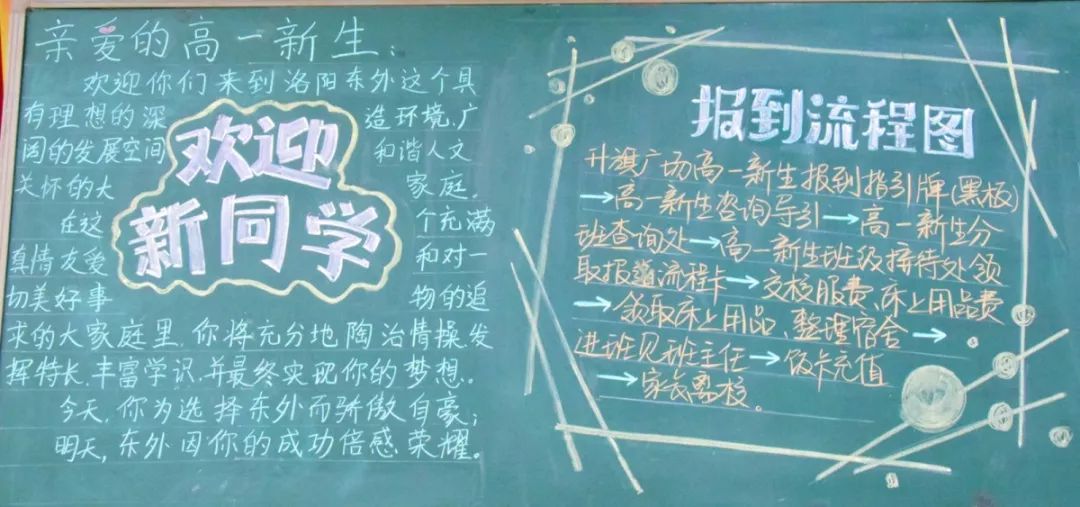 亲爱的高一新生：
欢迎你们来到洛阳东外这个具
有理想的深造环境,广
阔的发展空间和谐人文
关怀的大家庭。
在这个充满
真情友爱和对一
切美好事物的追
求的大家庭里,你将充分地陶冶情操发
挥特长,丰富学识,并最终实现你的梦想。
今天,你为选择东外而骄傲自豪;
明天,东外因你的成功倍感荣耀。
欢迎
新同学
报到流程图
升旗广场高一新生报到指引牌(黑板)
→高一新生咨询导引→高一新生分
班查询处→高一新生班级接待处领
取报到流程卡→交校服费、床上用品费
→领取床上用品、整理宿舍→
进班见班主任→饭卡充值
→家长离校。